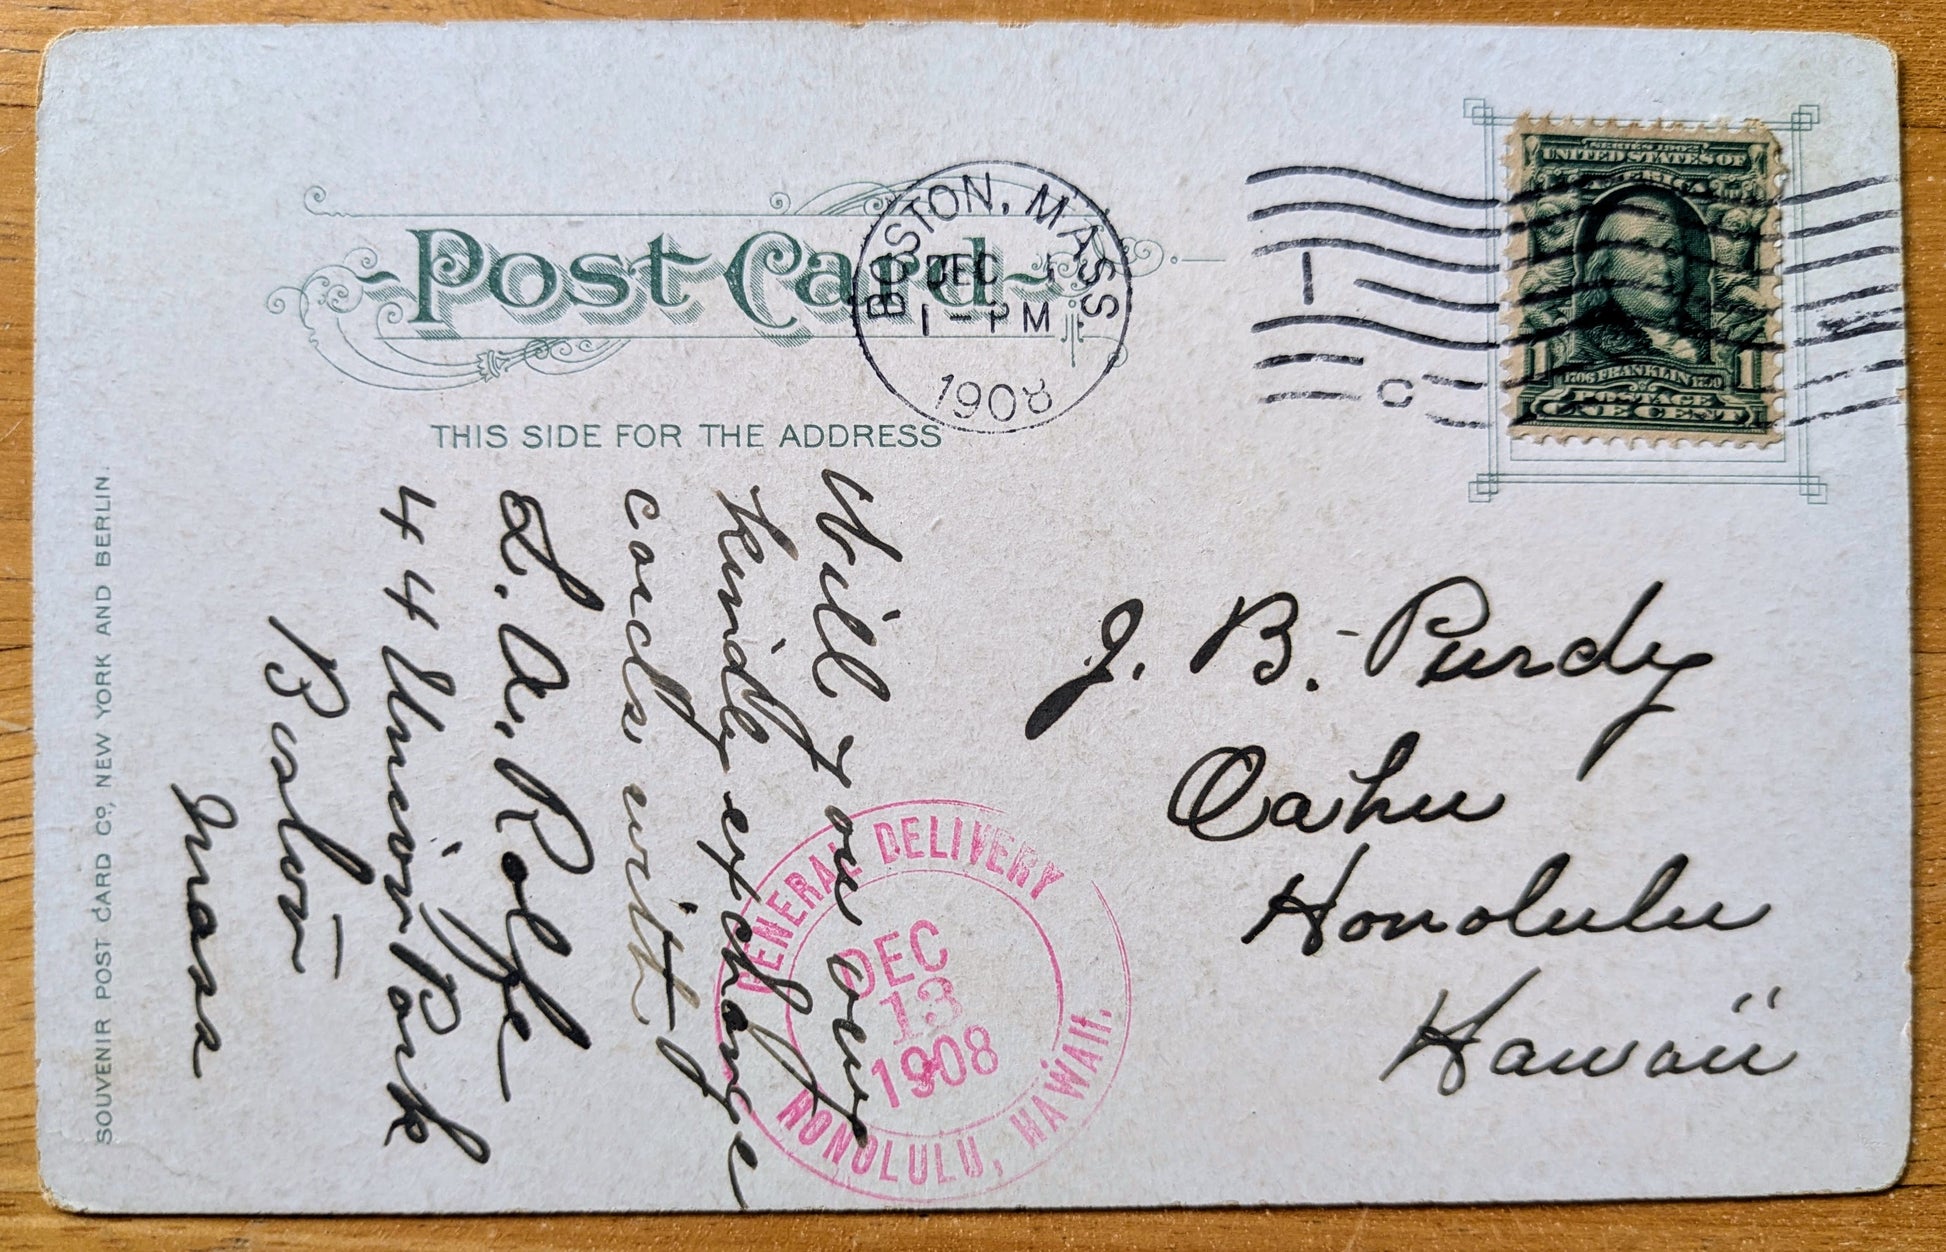 Post Card
THIS SIDE FOR THE ADDRESS
BOSTON, MASS.
DEC 1
1 - PM
1908
1
C
SERIES 1902
UNITED STATES OF
AMERICA
1706 FRANKLIN 1790
POSTAGE
1 1
ONE CENT
J. B. Purdy
Oahu
Honolulu
Hawaii
Will you
kindly exchange
cards with
L. A. Rolfe
44 Union Park
Boston
Mass
GENERAL DELIVERY
DEC
13
1908
HONOLULU, HAWAII.
SOUVENIR POST CARD CO, NEW YORK AND BERLIN.